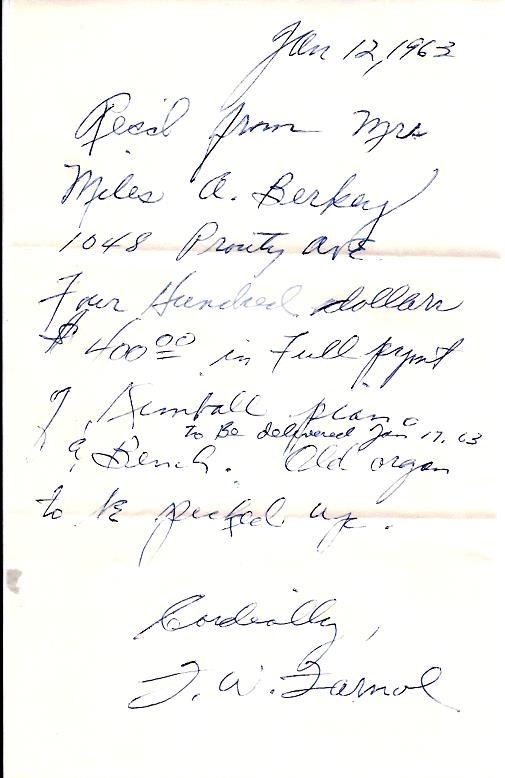 Jan 12, 1963
Rec'd from Mrs
Miles A. Berkey
1048 Prouty Ave
Four Hundred dollars
$400.00 in Full pymt
of Kimball piano
to Be delivered Jan 17, 63
& Bench. Old organ
to be picked up.
Cordially,
F. W. Farnol